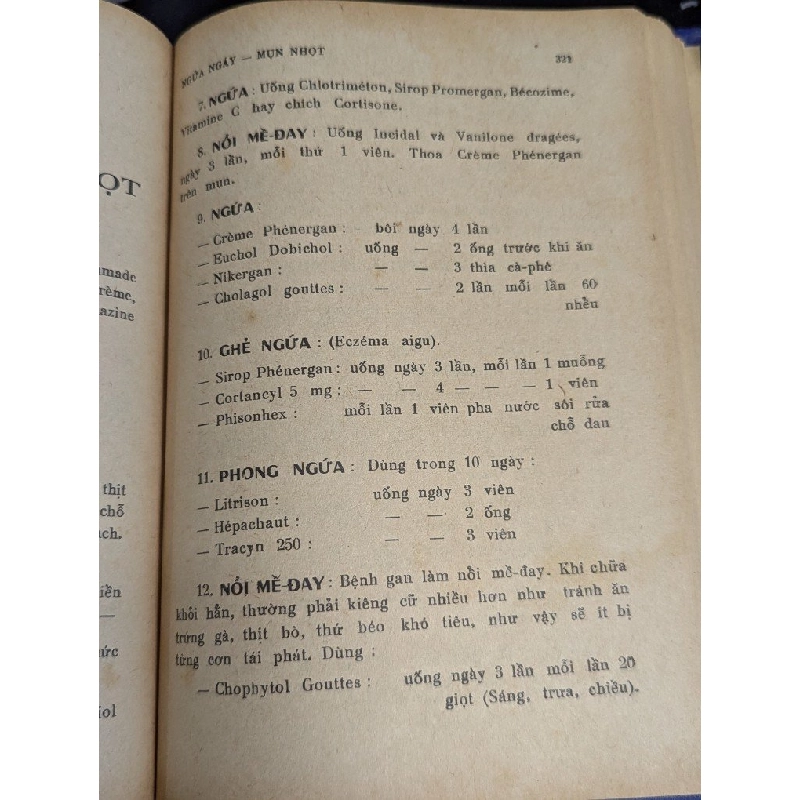 NGỨA NGÁY — MỤN NHỌT 321
7. NGỨA : Uống Chlotriméton, Sirop Promergan, Bécozime,
Vitamine C hay chích Cortisone.
8. NỔI MỀ-ĐAY : Uống Incidal và Vanilone dragées,
ngày 3 lần, mỗi thứ 1 viên. Thoa Crème Phénergan
trên mụn.
9. NGỨA :
— Crème Phénergan : bôi ngày 4 lần
— Euchol Dobichol : uống — 2 ống trước khi ăn
— Nikergan : — — 3 thìa cà-phê
— Cholagol gouttes : — 2 lần mỗi lần 60
nhều
10. GHẺ NGỨA : (Eczéma aigu).
— Sirop Phénergan : uống ngày 3 lần, mỗi lần 1 muỗng
— Cortancyl 5 mg : — — 4 — — — 1 viên
— Phisonhex : mỗi lần 1 viên pha nước sôi rửa
chỗ đau
11. PHONG NGỨA : Dùng trong 10 ngày :
— Litrison : uống ngày 3 viên
— Hépachaut : — — 2 ống
— Tracyn 250 : — — 3 viên
12. NỔI MỀ-ĐAY : Bệnh gan làm nổi mề-đay. Khi chữa
khỏi hẳn, thường phải kiêng cữ nhiều hơn như tránh ăn
trứng gà, thịt bò, thứ béo khó tiêu, như vậy sẽ ít bị
từng cơn tái phát. Dùng :
— Chophytol Gouttes : uống ngày 3 lần mỗi lần 20
giọt (Sáng, trưa, chiều).
ỌT
made
rème,
azine
thịt
chỗ
ach.
iền
—
ức
iol